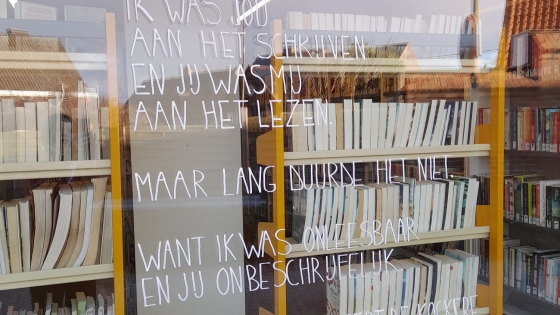 IK WAS JOU
AAN HET SCHRIJVEN
EN JIJ WAS MIJ
AAN HET LEZEN.
MAAR LANG DUURDE HET NIET
WANT IK WAS ONLEESBAAR
EN JIJ ONBESCHRIJFELIJK.
DE KOCKERE